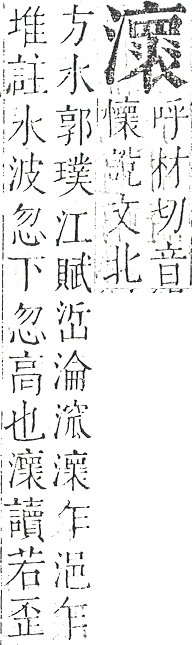 瀤
呼材切音
懷說文北
方水郭璞江賦㳌淪溛瀤乍浥乍
堆註水波忽下忽高也瀤讀若歪